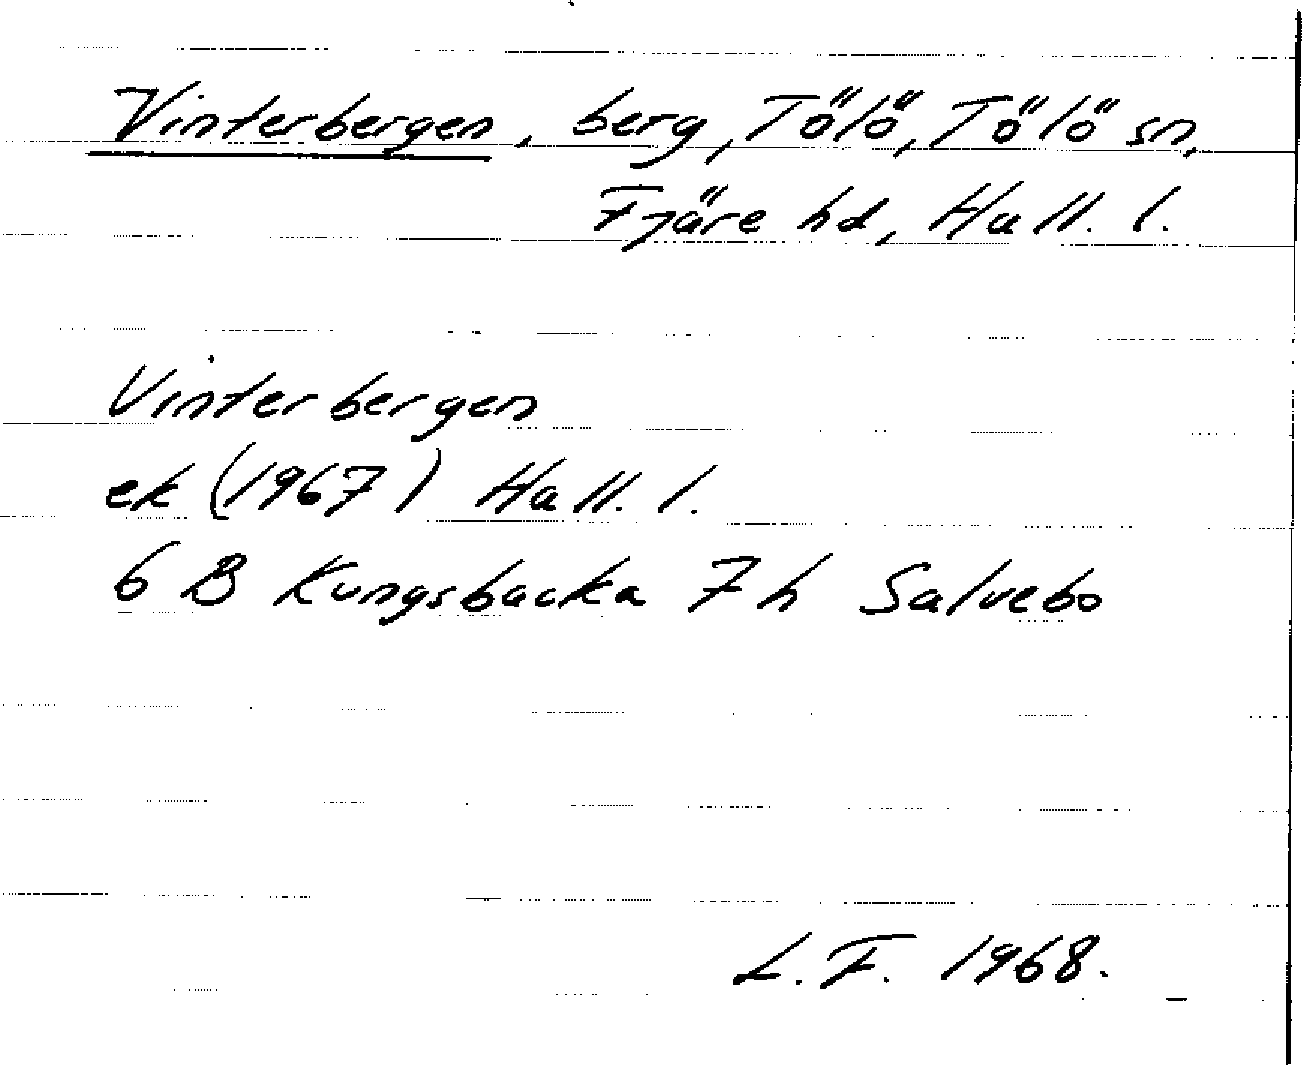 Vinterbergen, berg, Tölö, Tölö sn,
Fjäre hd, Hall. l.
Vinterbergen
ek (1967) Hall. l.
6 B Kungsbacka 7 h Salvebo
L. F. 1968.